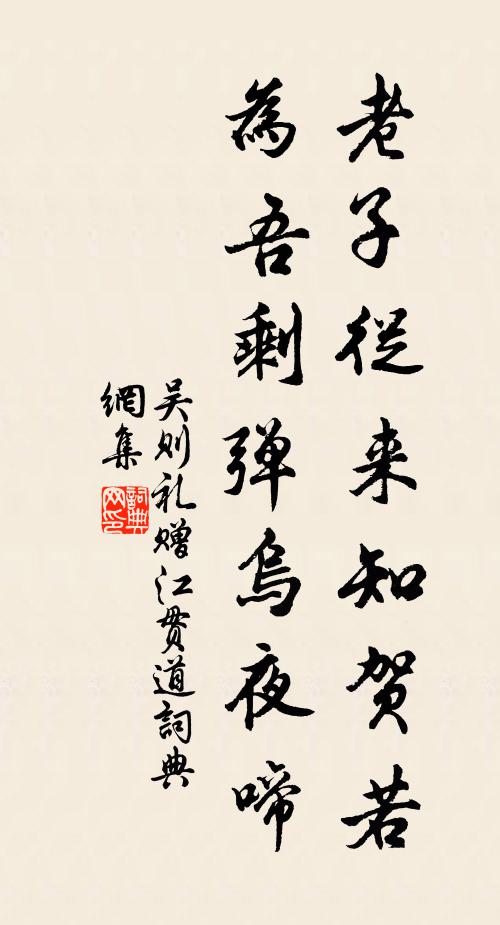 老子從来知贺若
為吾剩弹烏夜啼
吴则礼赠江贯道詞典
網集
詞典
网印